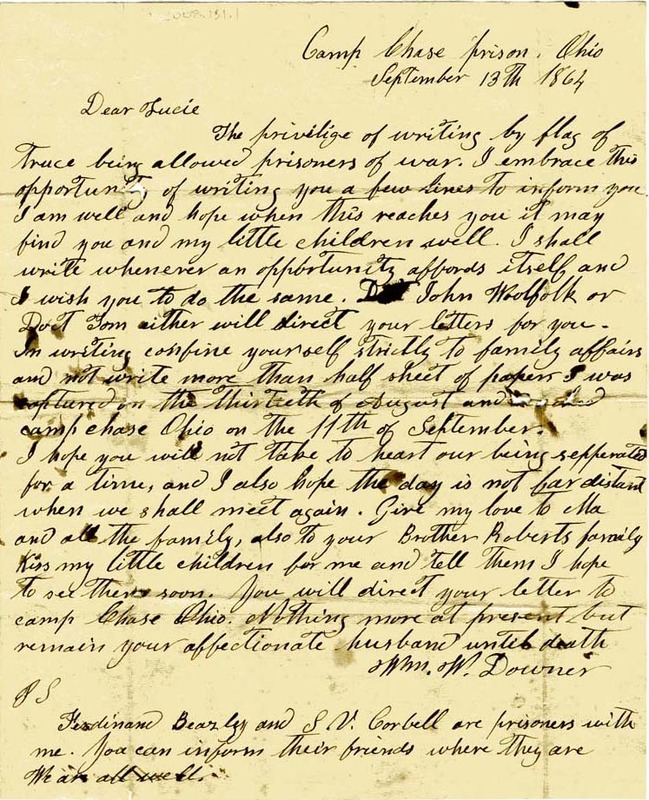 Camp Chase prison. Ohio
September 13th 1864
Dear Lucie
The privilige of writing by flag of
truce being allowed prisoners of war. I embrace this
opportunity of writing you a few lines to inform you
I am well and hope when this reaches you it may
find you and my little children well. I shall
write whenever an opportunity affords itself and
I wish you to do the same. John Woolfolk or
Doct Tom either will direct your letters for you.
In writing confine yourself strictly to family affairs
and not write more than half sheet of paper I was
captured on the thirtieth of August and
camp chase Ohio on the 11th of September.
I hope you will not take to heart our being sepperated
for a time, and I also hope the day is not far distant
when we shall meet again. Give my love to Ma
and all the family, also to your Brother Roberts family
Kiss my little children for me and tell them I hope
to see them soon. You will direct your letter to
camp Chase Ohio. Nothing more at present but
remain your affectionate husband until death
Wm. W. Downer
P S
Ferdinand Beazley and S. V. Corbell are prisoners with
me. You can inform their friends where they are
We are all well.